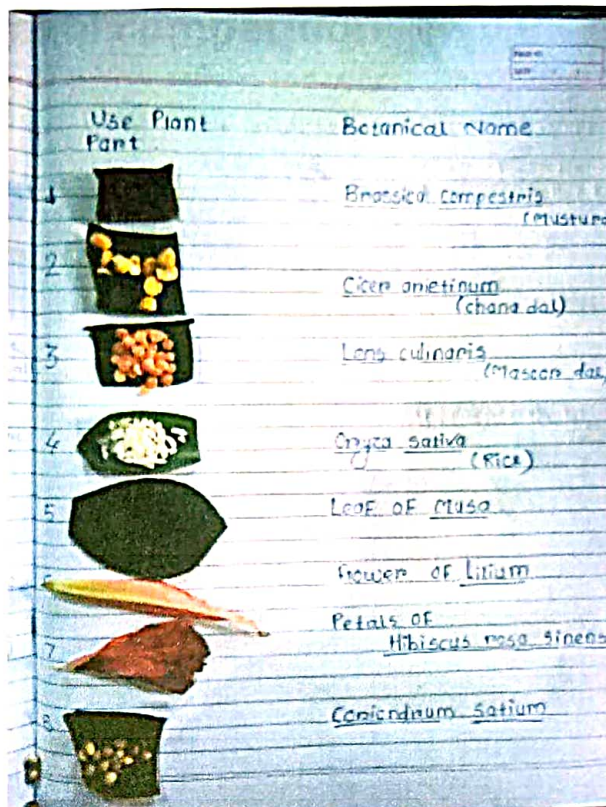 Use Plant Part
Botanical Name
1
Brassica compestris
(Musturd
2
Cicer arietinum
(chana dal)
3
Lens culinaris
(Masoor dal
4
Oryza sativa
(Rice)
5
Leaf of Musa
6
Flower of Lilium
7
Petals of
Hibiscus rosa sinens
8
Coriendrum Satium